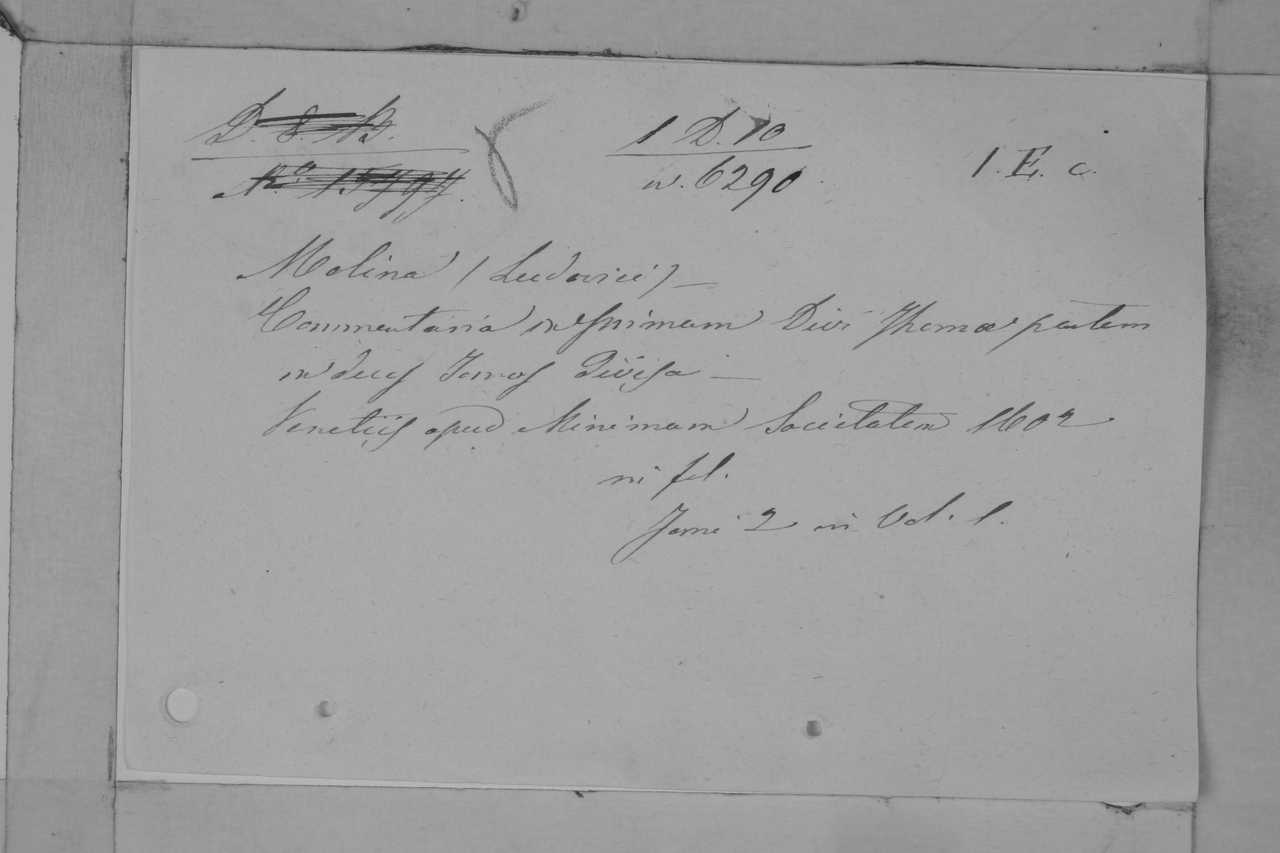 D. 8. B.
1 D. 10
N.o 15494.
n. 6290
1. E. c.
Molina (Ludovici) —
Commentaria in primam Divi Thomæ partem
in duos Tomos Divisa —
Venetiis apud Minimam Societatem 1602
in fol.
Tomi 2 in Vol. 1.